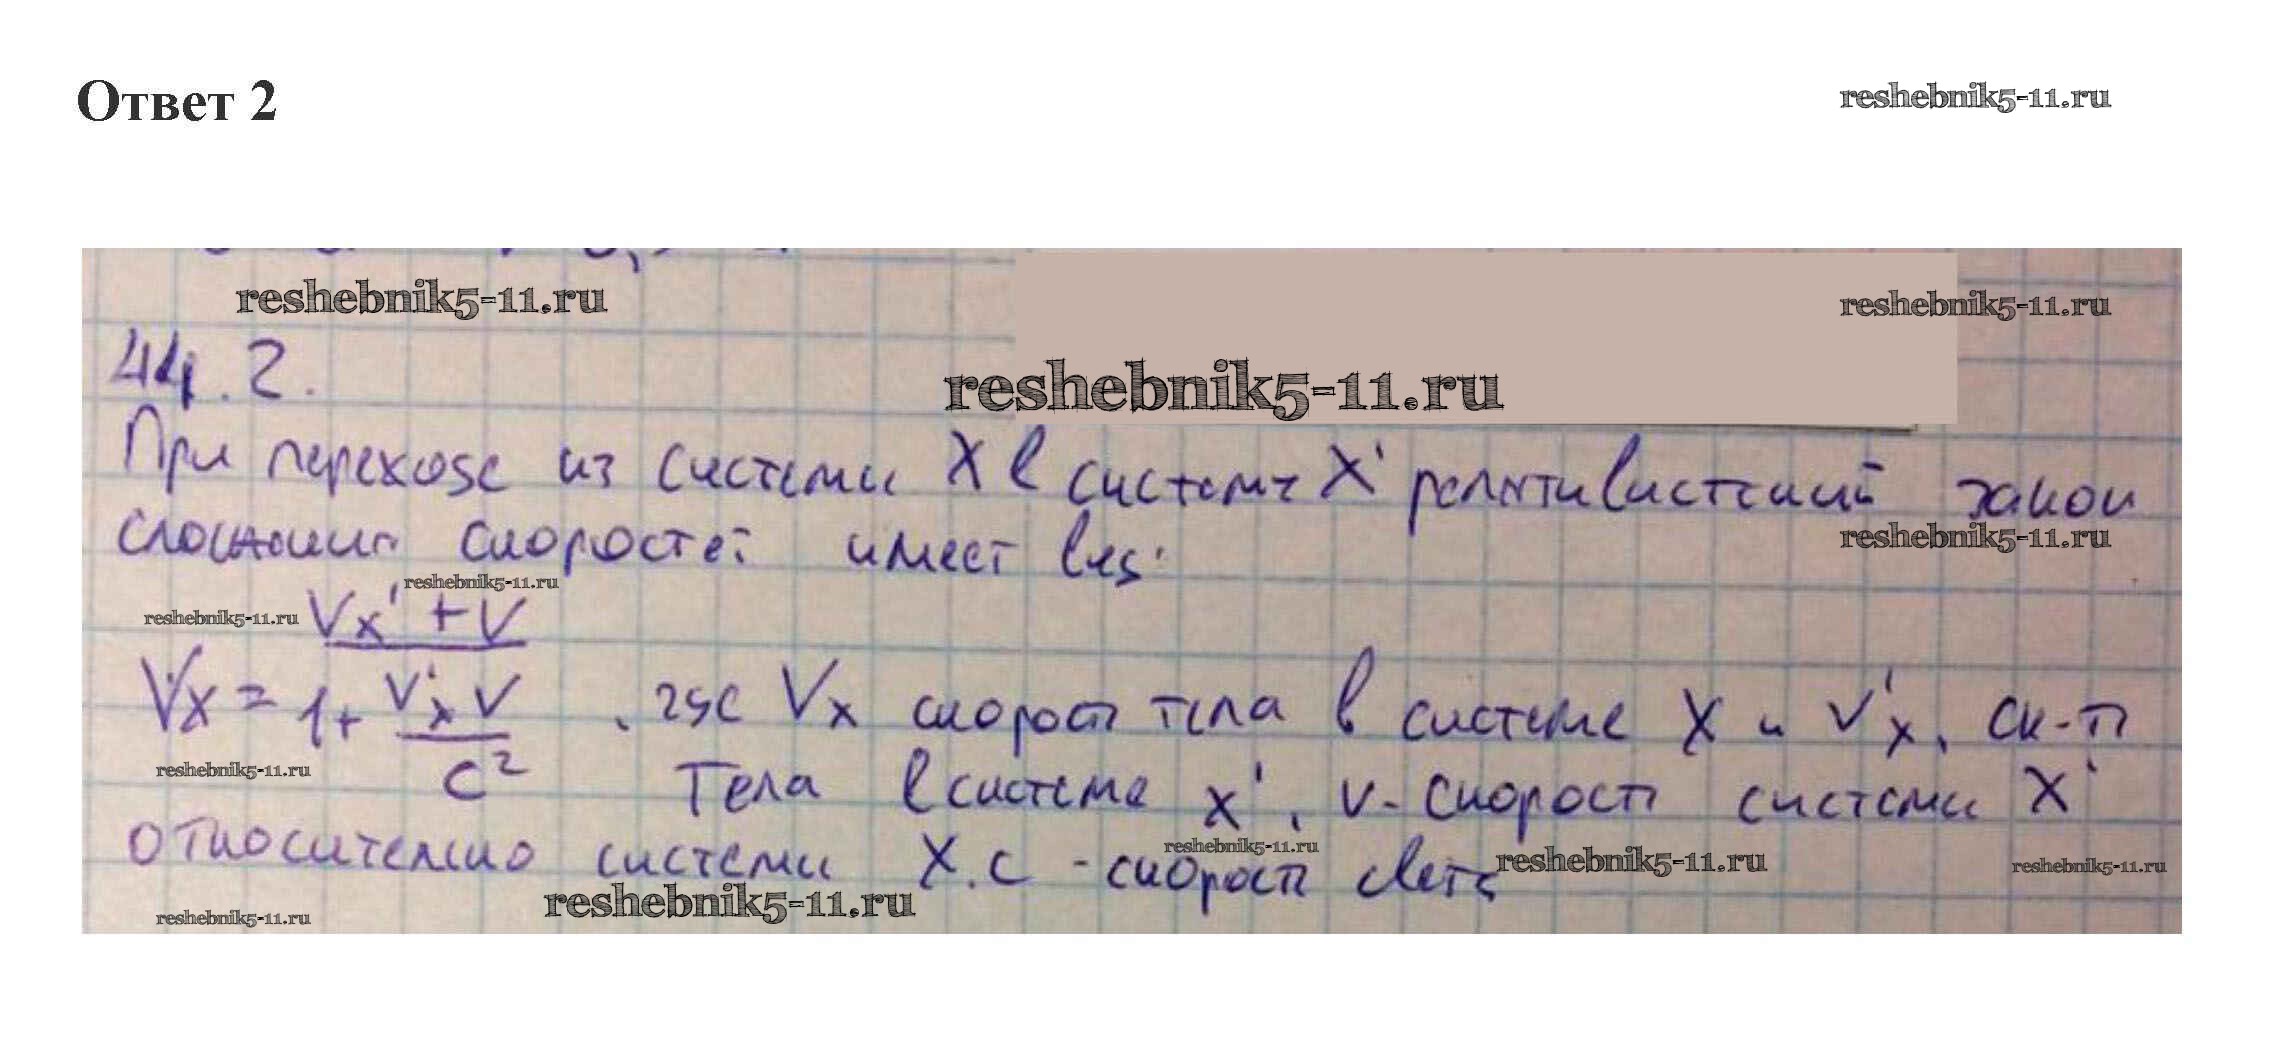 Ответ 2
reshebnik5-11.ru
reshebnik5-11.ru
reshebnik5-11.ru
44.2.
reshebnik5-11.ru
При переходе из системы X в систему X' релятивистский закон
сложения скоростей имеет вид:
reshebnik5-11.ru
reshebnik5-11.ru
reshebnik5-11.ru
Vx' + V
Vx = 1 + V'x V , где Vx скорость тела в системе X и V'x, ск-ть
reshebnik5-11.ru
c² Тела в системе x', v - скорость системы X'
относительно системы X. c - скорость света
reshebnik5-11.ru
reshebnik5-11.ru
reshebnik5-11.ru
reshebnik5-11.ru
reshebnik5-11.ru